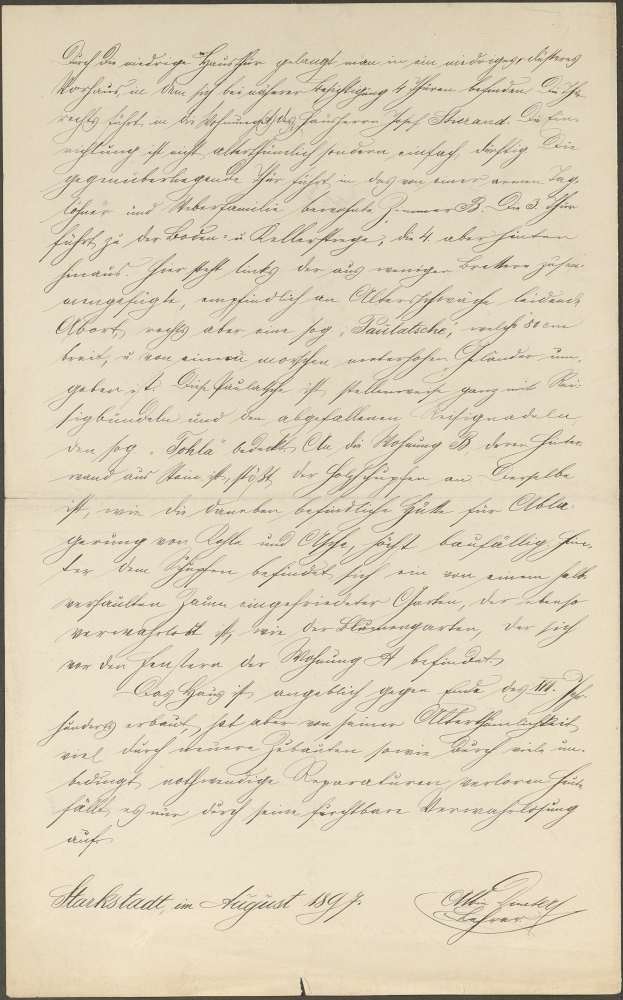 Durch die niedrige Hausthür gelangt man in ein niedriges, düsteres
Vorhaus, in dem sich bei näherer Besichtigung 4 Thüren befinden. Die Thür
rechts führt in die Wohnung des Hausherrn Josef Thurand. Die Ein-
richtung ist nicht alterthümlich sondern einfach, dürftig. Die
gegenüberliegende Thür führt in das von einer armen Tag-
löhner und Weberfamilie bewohnte Zimmer B. Die 3. Thür
führt zu der Boden= u. Kellerstiege, die 4. aber hinten
hinaus. Hier steht links der aus wenigen Brettern zusam-
mengefügte, empfindlich an Altersschwäche leidende
Abort, rechts aber eine sog. „Paulatsche", welche 80 cm
breit, u. von einem morschen Geländer um-
geben ist. Diese Paulatsche ist stellenweise ganz mit Rei-
sigbündeln und den abgefallenen Reisignadeln,
den sog. „Tohla" bedeckt. An die Wohnung B, deren Hinter-
wand aus Stein ist, stößt der Holzschupfen an. Derselbe
ist, wie die daneben befindliche Hütte für Abla-
gerung von Kohle und Asche, höchst baufällig. Hin-
ter dem Schupfen befindet sich ein von einem halb
verfaulten Zaun eingefriedeter Garten, der ebenso
verwahrlost ist, wie der Blumengarten, der sich
vor den Fenstern der Wohnung A befindet.
Das Haus ist angeblich gegen Ende des Jahr-
hunderts erbaut, hat aber von seiner Alterthümlichkeit
viel durch neuere Zubauten sowie durch viele un-
bedingt nothwendige Reparaturen verloren. Heute
fällt es nur durch seine furchtbare Verwahrlosung
auf.
Starkstadt, im August 1897.
Lehrer